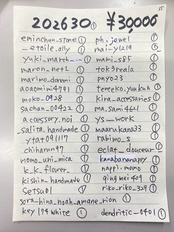 202630① ¥30000
eninchan_stone① ph_jewel①
_etoile.olly① mai_yl219①
yuki_march_① mami_s85①
maron_net2① tok3reala①
marino.danmi① payo23①
aoaomi64991① tereeko.yukka①
moko_0928① kira_accessories①
sachan_00423① ma.simi4641①
accessory.noi① ys_work①
salita_handmade① maarukana33①
ytat091119① rabimo_s①
chiharun99① eclat_douceur①
momo_uni_mica① kanabanamapy①
k_k_flower_① nappi.momo①
kishie_handmade① qingmei409①
setsupl① riko_riko_309①
sora_hina_noah_amane_rion①
key194white① dendritic_0401①